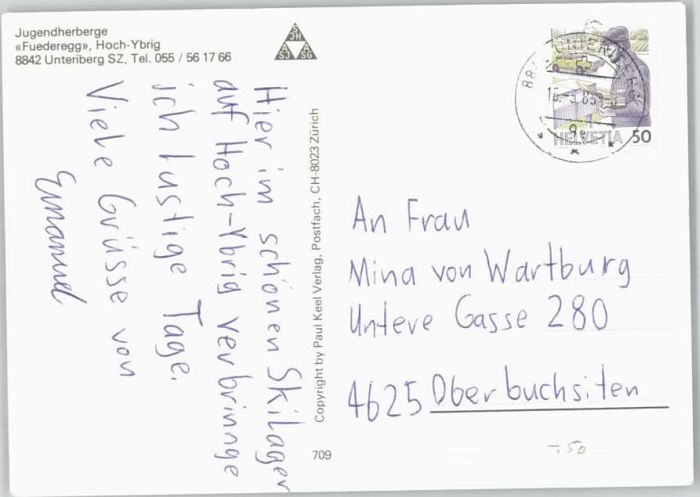 Jugendherberge
«Fuederegg», Hoch-Ybrig
8842 Unteriberg SZ, Tel. 055 / 56 17 66
JH
SJ SG
Hier im schönen Skilager
auf Hoch-Ybrig verbringe
ich lustige Tage.
Viele Grüsse von
Emanuel
Copyright by Paul Keel Verlag, Postfach, CH-8023 Zürich
709
HELVETIA 50
An Frau
Mina von Wartburg
Untere Gasse 280
4625 Oberbuchsiten
-.50